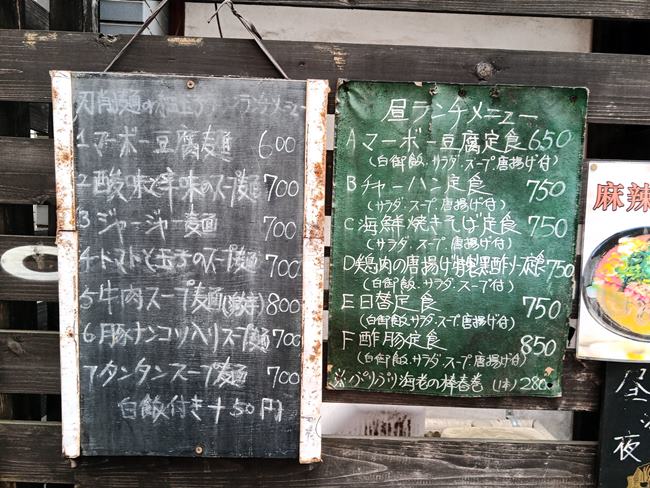 刀削麺の極上ランランチメニュー
1 マーボー豆腐麺 600
2 酸味と辛味のスープ麺 700
3 ジャージャー麺 700
4 トマトと玉子のスープ麺 700
5 牛肉スープ麺(激辛) 800
6 豚ナンコツ入りスープ麺 700
7 タンタンスープ麺 700
白飯付き+50円
昼ランチメニュー
A マーボー豆腐定食 650
(白御飯、サラダ、スープ、唐揚げ付)
B チャーハン定食 750
(サラダ、スープ、唐揚げ付)
C 海鮮焼きそば定食 750
(サラダ、スープ、唐揚げ付)
D 鶏肉の唐揚げ特製黒酢ソース定食 750
(白御飯、サラダ、スープ付)
E 日替定食 750
(白御飯、サラダ、スープ、唐揚げ付)
F 酢豚定食 850
(白御飯、サラダ、スープ、唐揚げ付)
※ぷりぷり海老の棒春巻(1本)280
麻辣
昼
夜